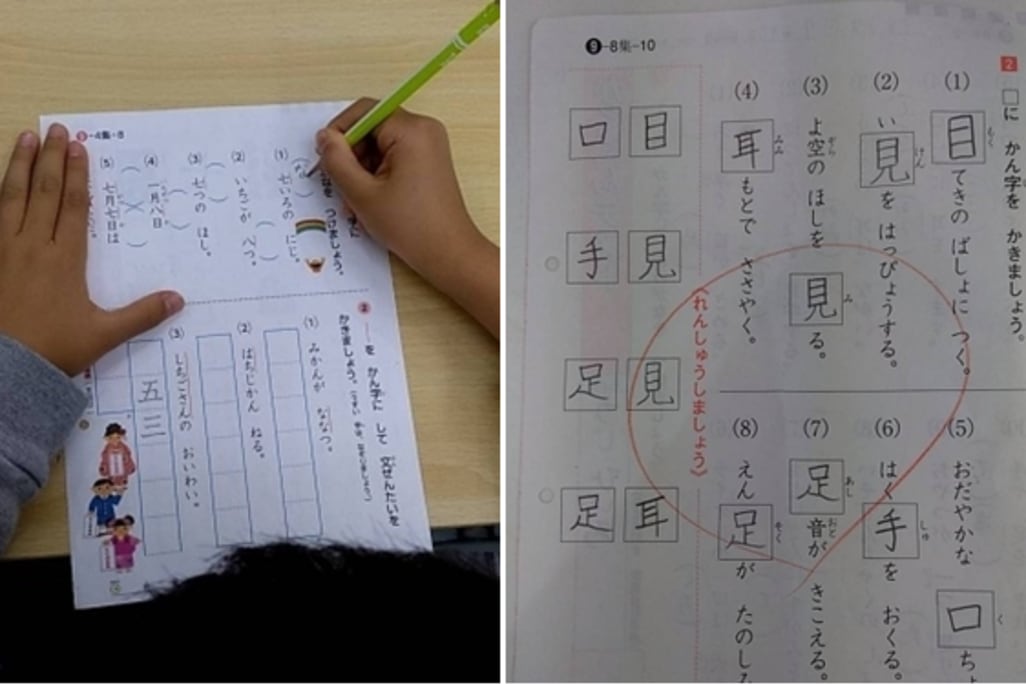 -4集-8
(1) 七いろの にじ。
(2) いちごが 八つ。
(3) 七つの ほし。
(4) 一月八日
(5) 七月七日は
つけましょう。
2 ──を かん字に して 文ぜんたいを
かきましょう。
(1) みかんが ななつ。
(2) はちじかん ねる。
(3) しちごさんの おいわい。
五三
9-8集-10
2 □に かん字を かきましょう。
(1) 目てきの ばしょに つく。
もく
(2) い見を はっぴょうする。
けん
(3) よ空の ほしを 見る。
ぞら
み
(4) 耳もとで ささやく。
みみ
(5) おだやかな 口ち
く
(6) はく手を おくる。
しゅ
(7) 足音が きこえる。
あし
おと
(8) えん足が たのし
そく
〈れんしゅうしましょう〉
目 見 見 耳
口 手 足 足